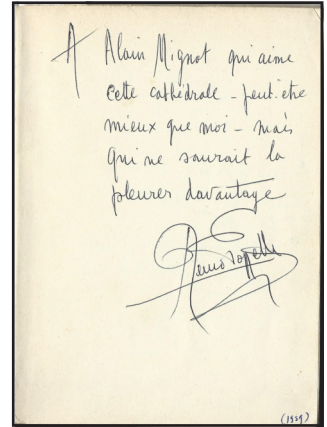 A Alain Mignot qui aime
cette cathédrale - peut-être
mieux que moi - mais
qui ne saurait la
pleurer davantage
(1929)